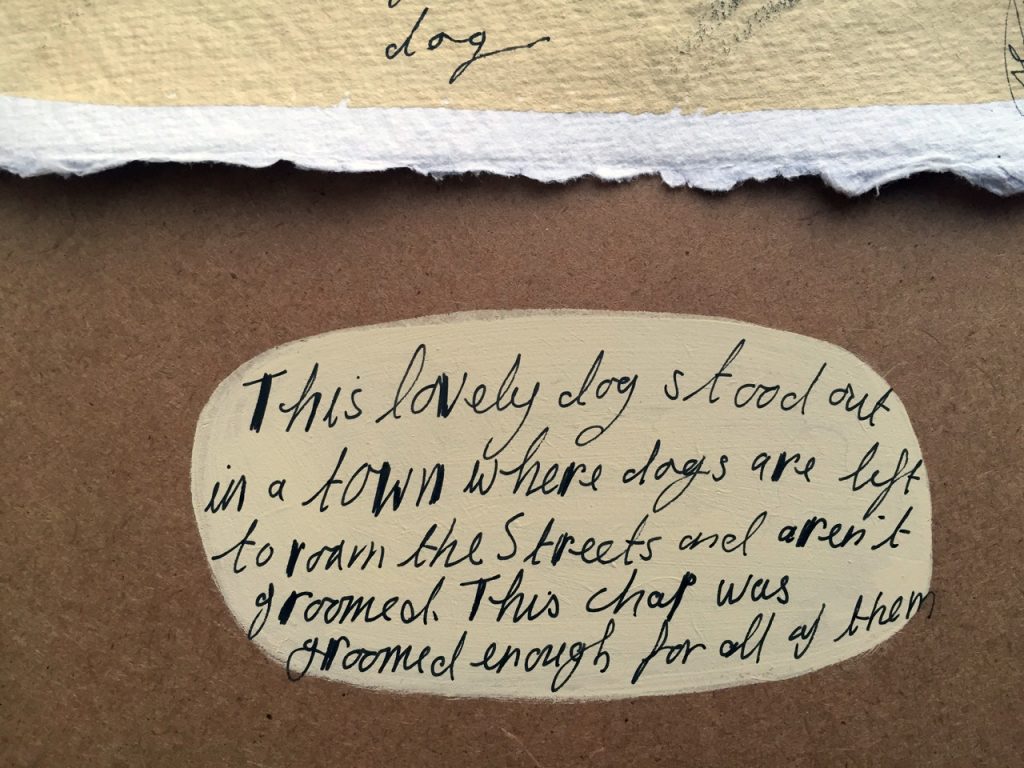 dog
This lovely dog stood out
in a town where dogs are left
to roam the Streets and aren't
groomed. This chap was
groomed enough for all of them